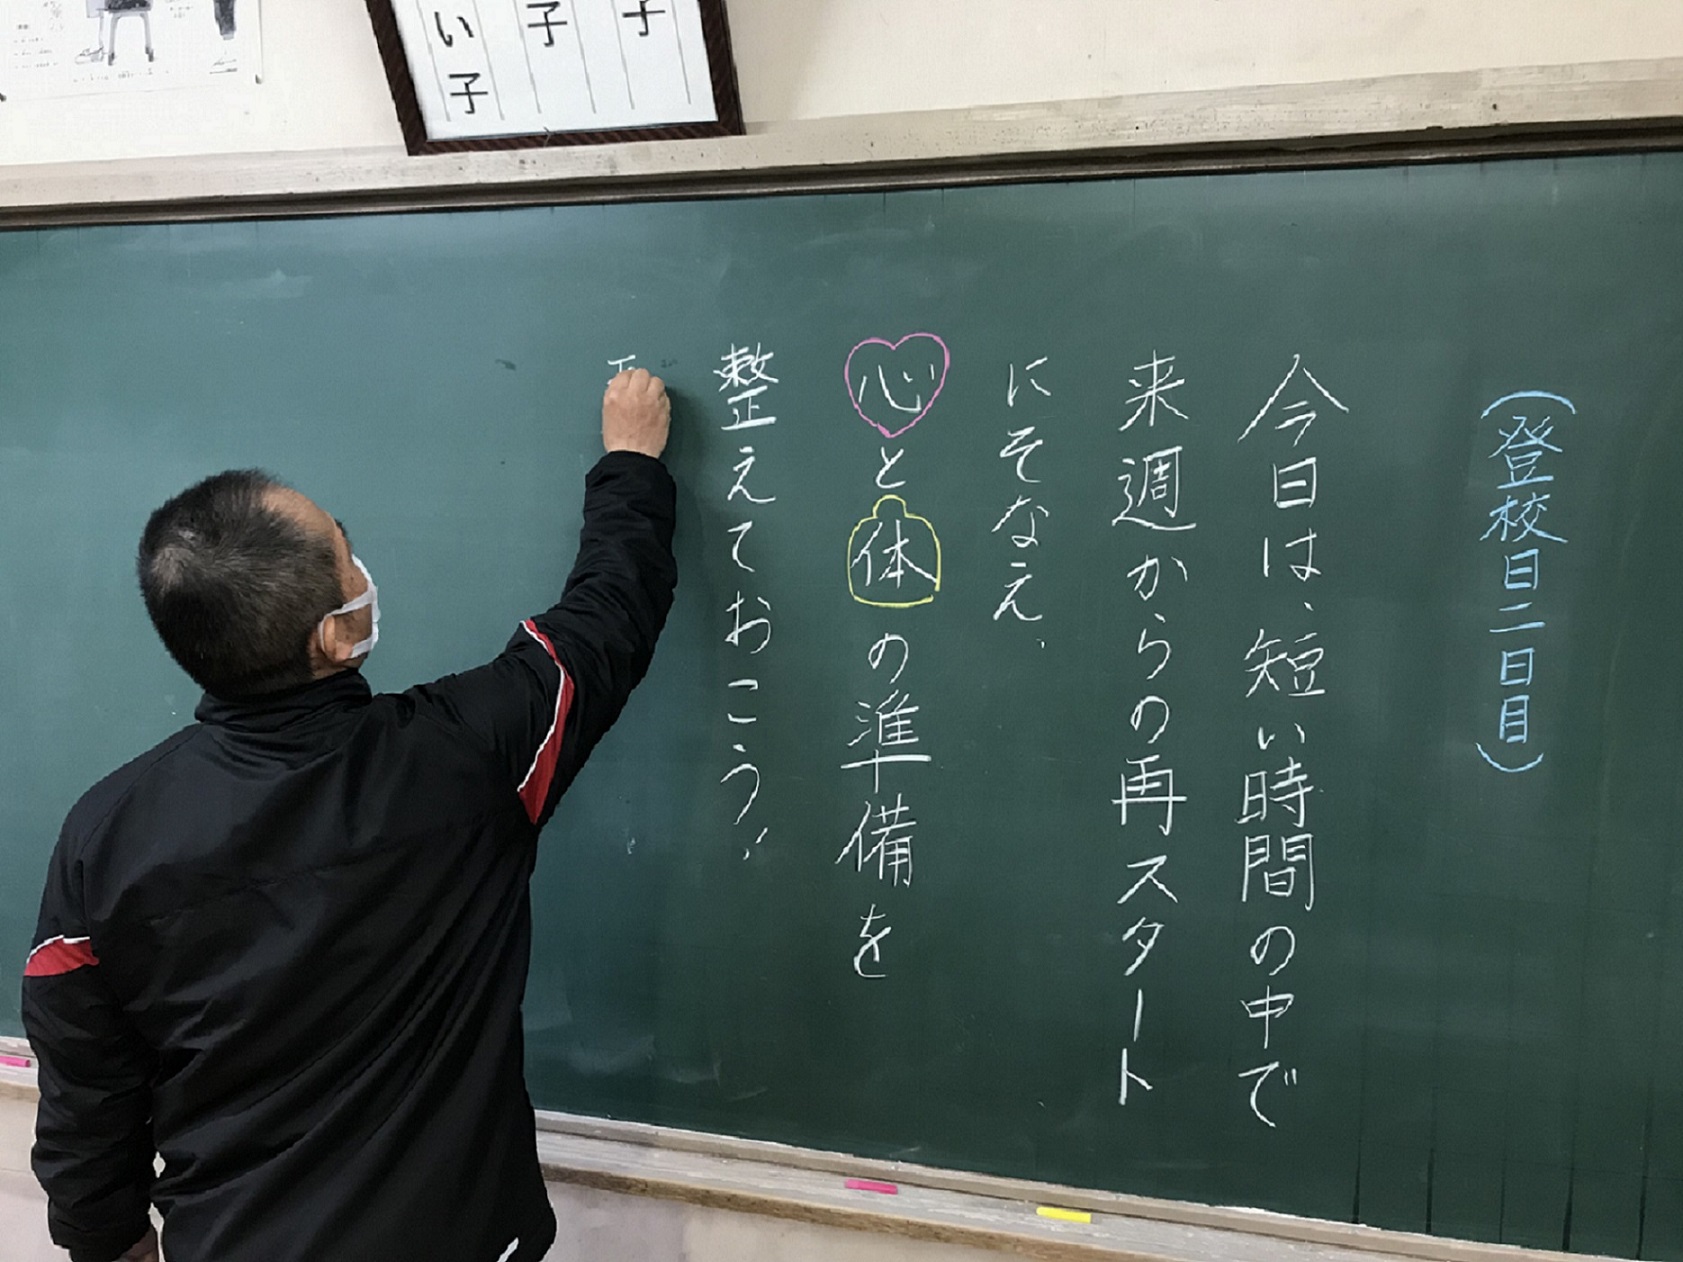 （登校日二日目）
今日は、短い時間の中で
来週からの再スタート
にそなえ、
心と体の準備を
整えておこう！
子
子
い子